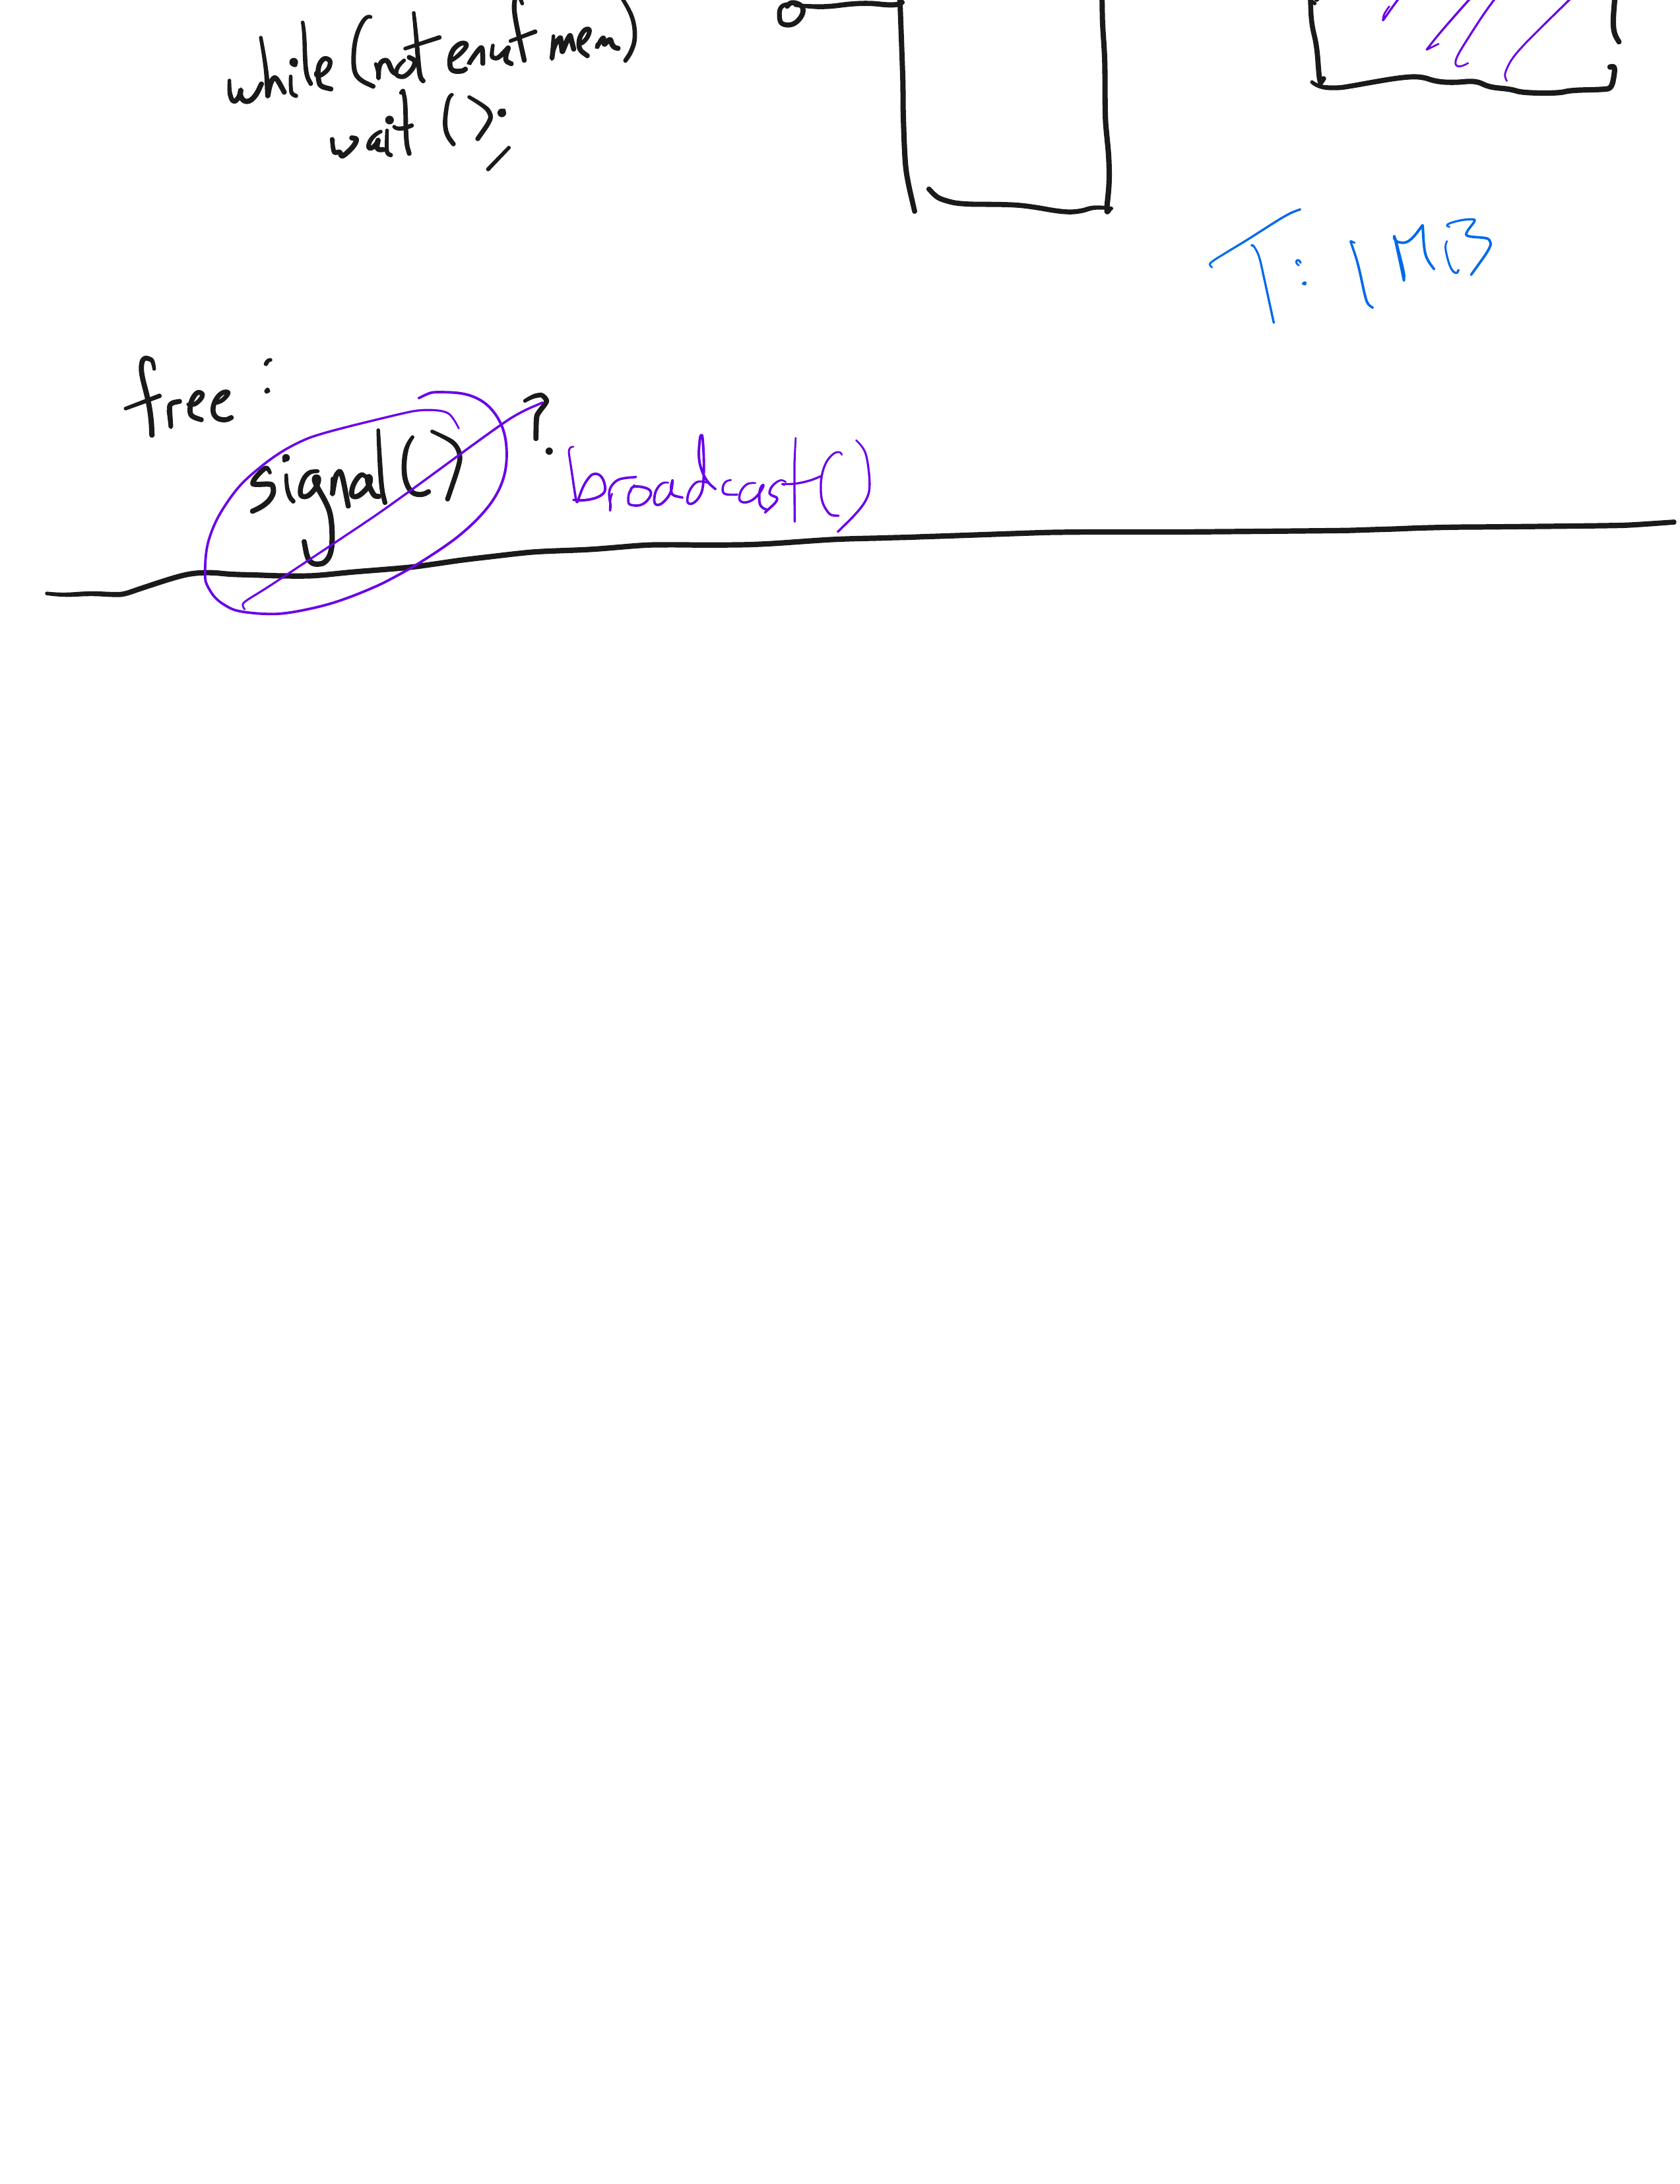 while (not enuf mem)
wait ();
T: 1 MB
free :
signal() ? broadcast()